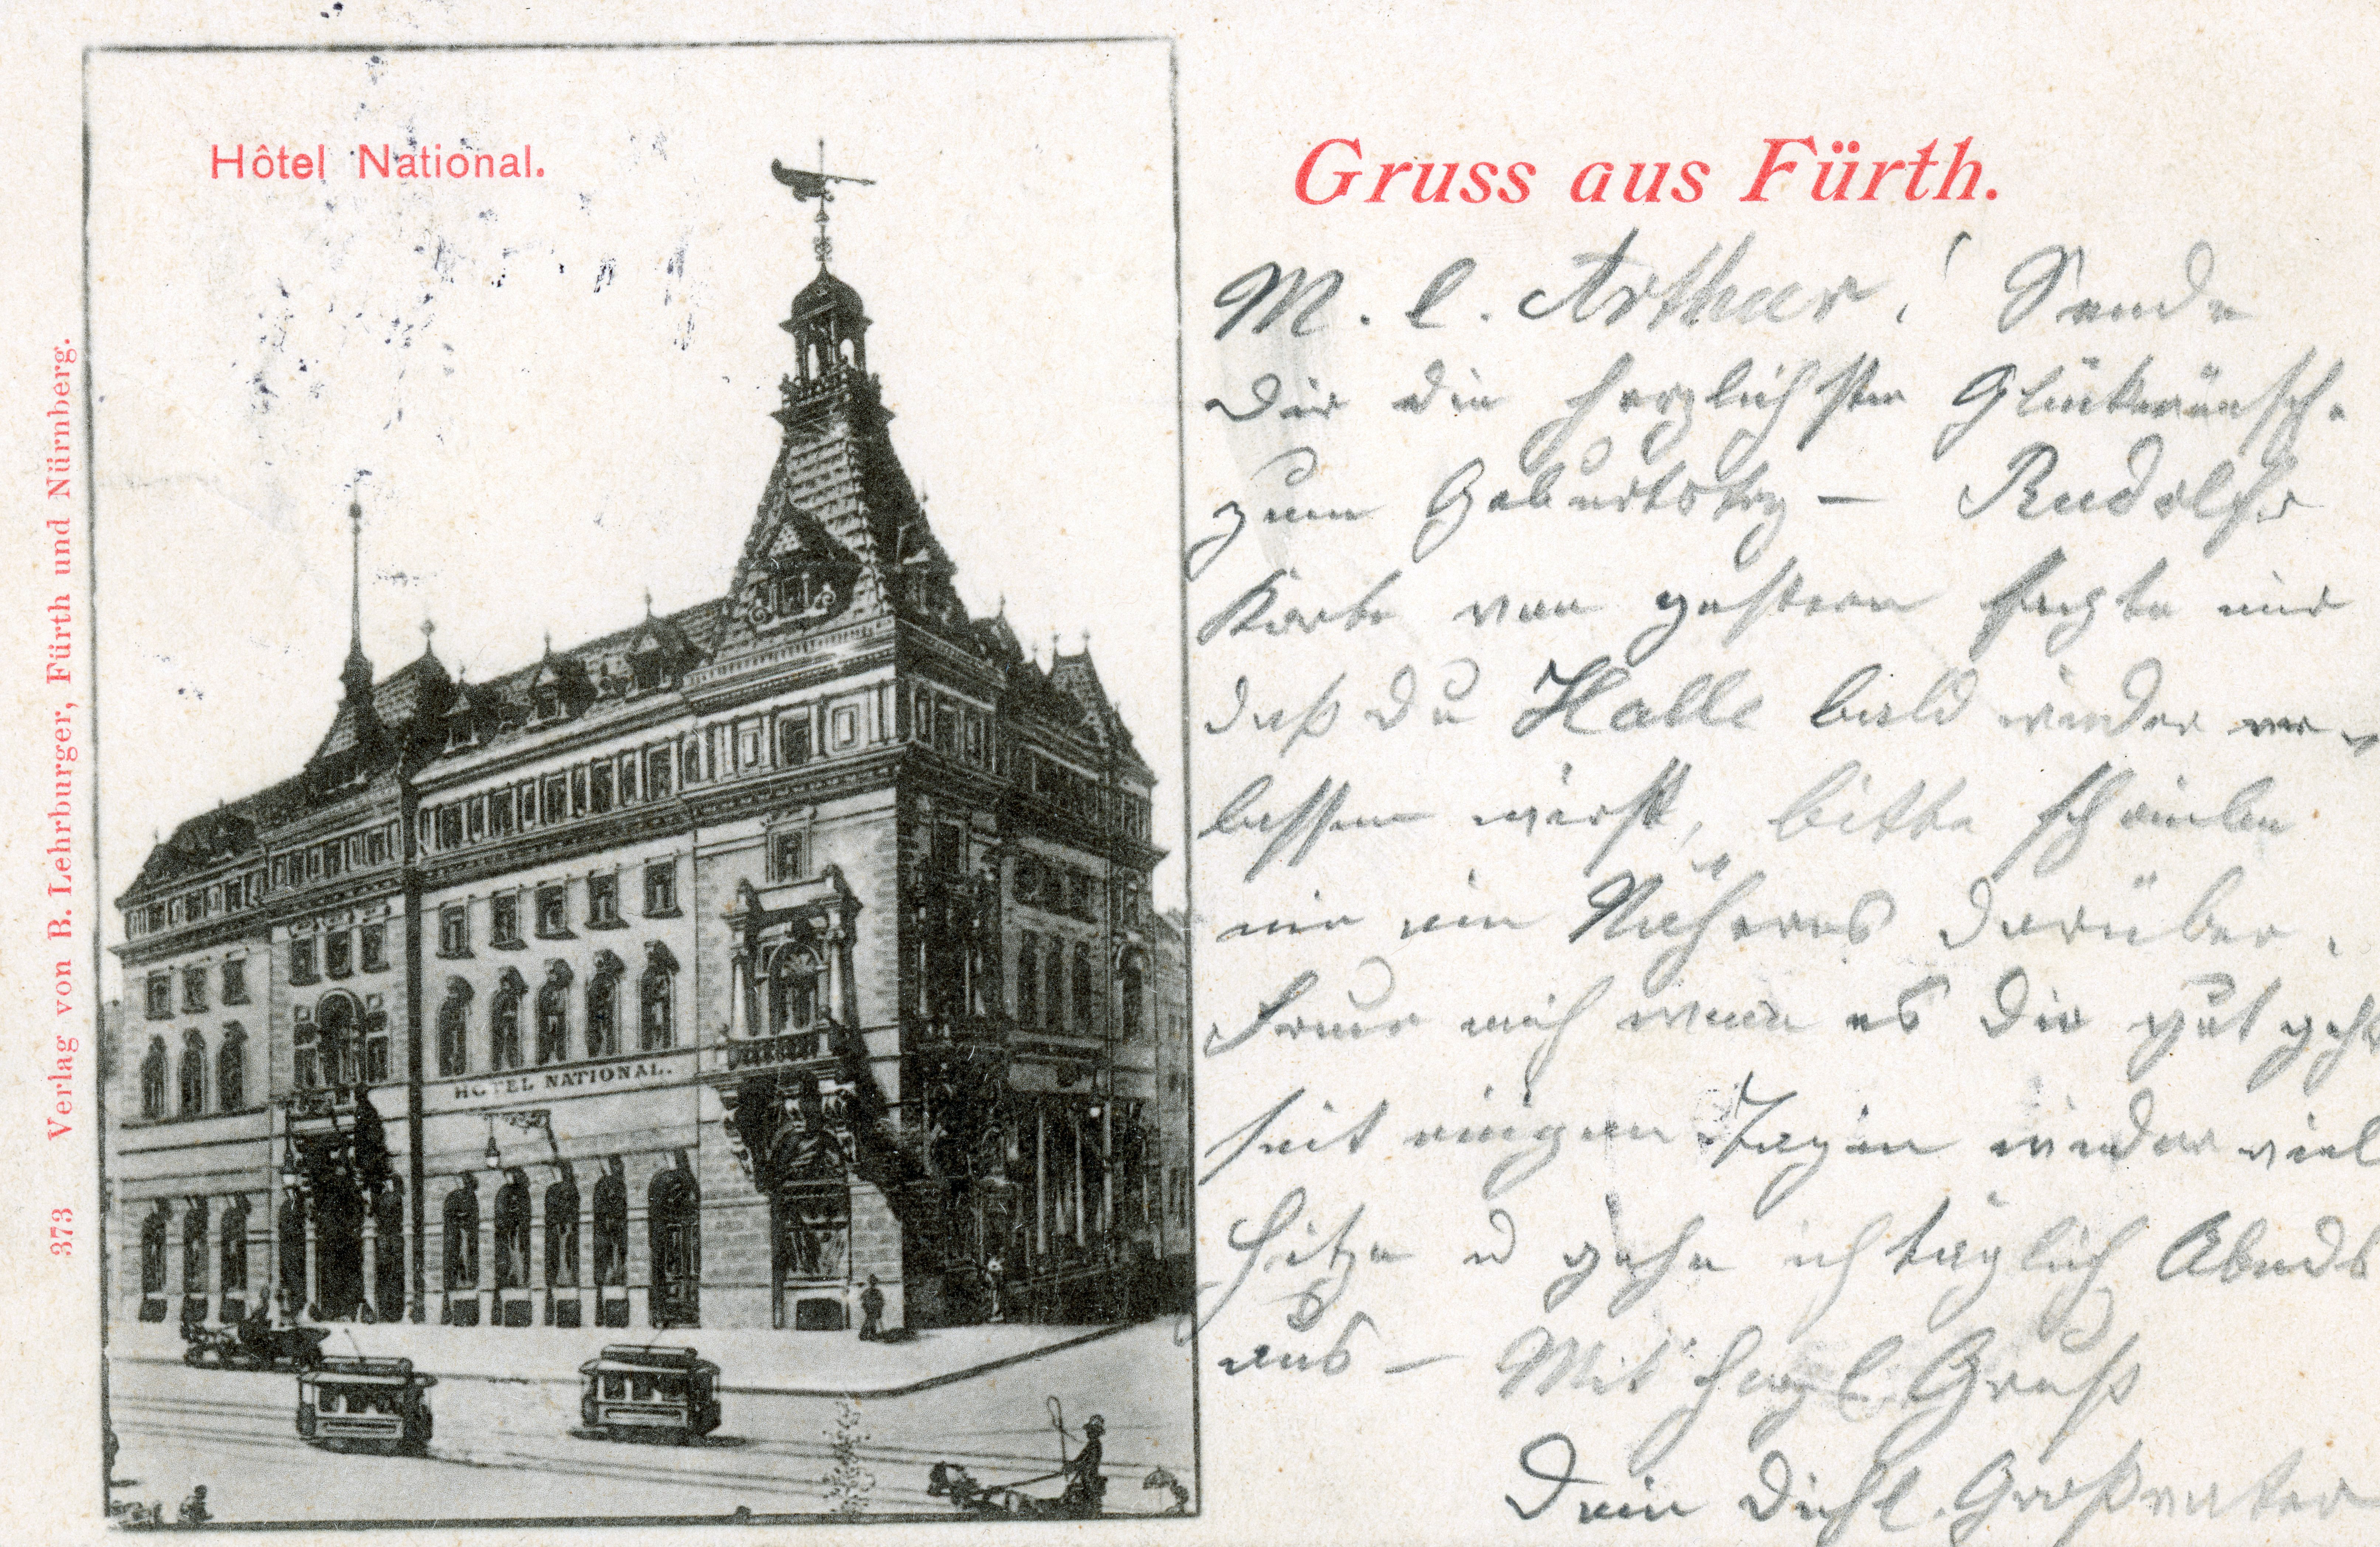 Hôtel National.
Verlag von B. Lehrburger, Fürth und Nürnberg.
373
HOTEL NATIONAL.
Gruss aus Fürth.
M. l. Arthur! Sende
Dir die herzlichsten Glückwünsche
zum Geburtstag – Rudolfs
Karte von gestern sagte mir
daß Du Halle bald wieder ver-
lassen wirst, bitte schreibe
mir ein Näheres darüber.
Freue mich wenn es Dir gut geht
seit einigen Tagen wieder viel
Hitze u gehe ich täglich Abends
aus – Mit herzl. Gruß
Dein Dich l. Großvater